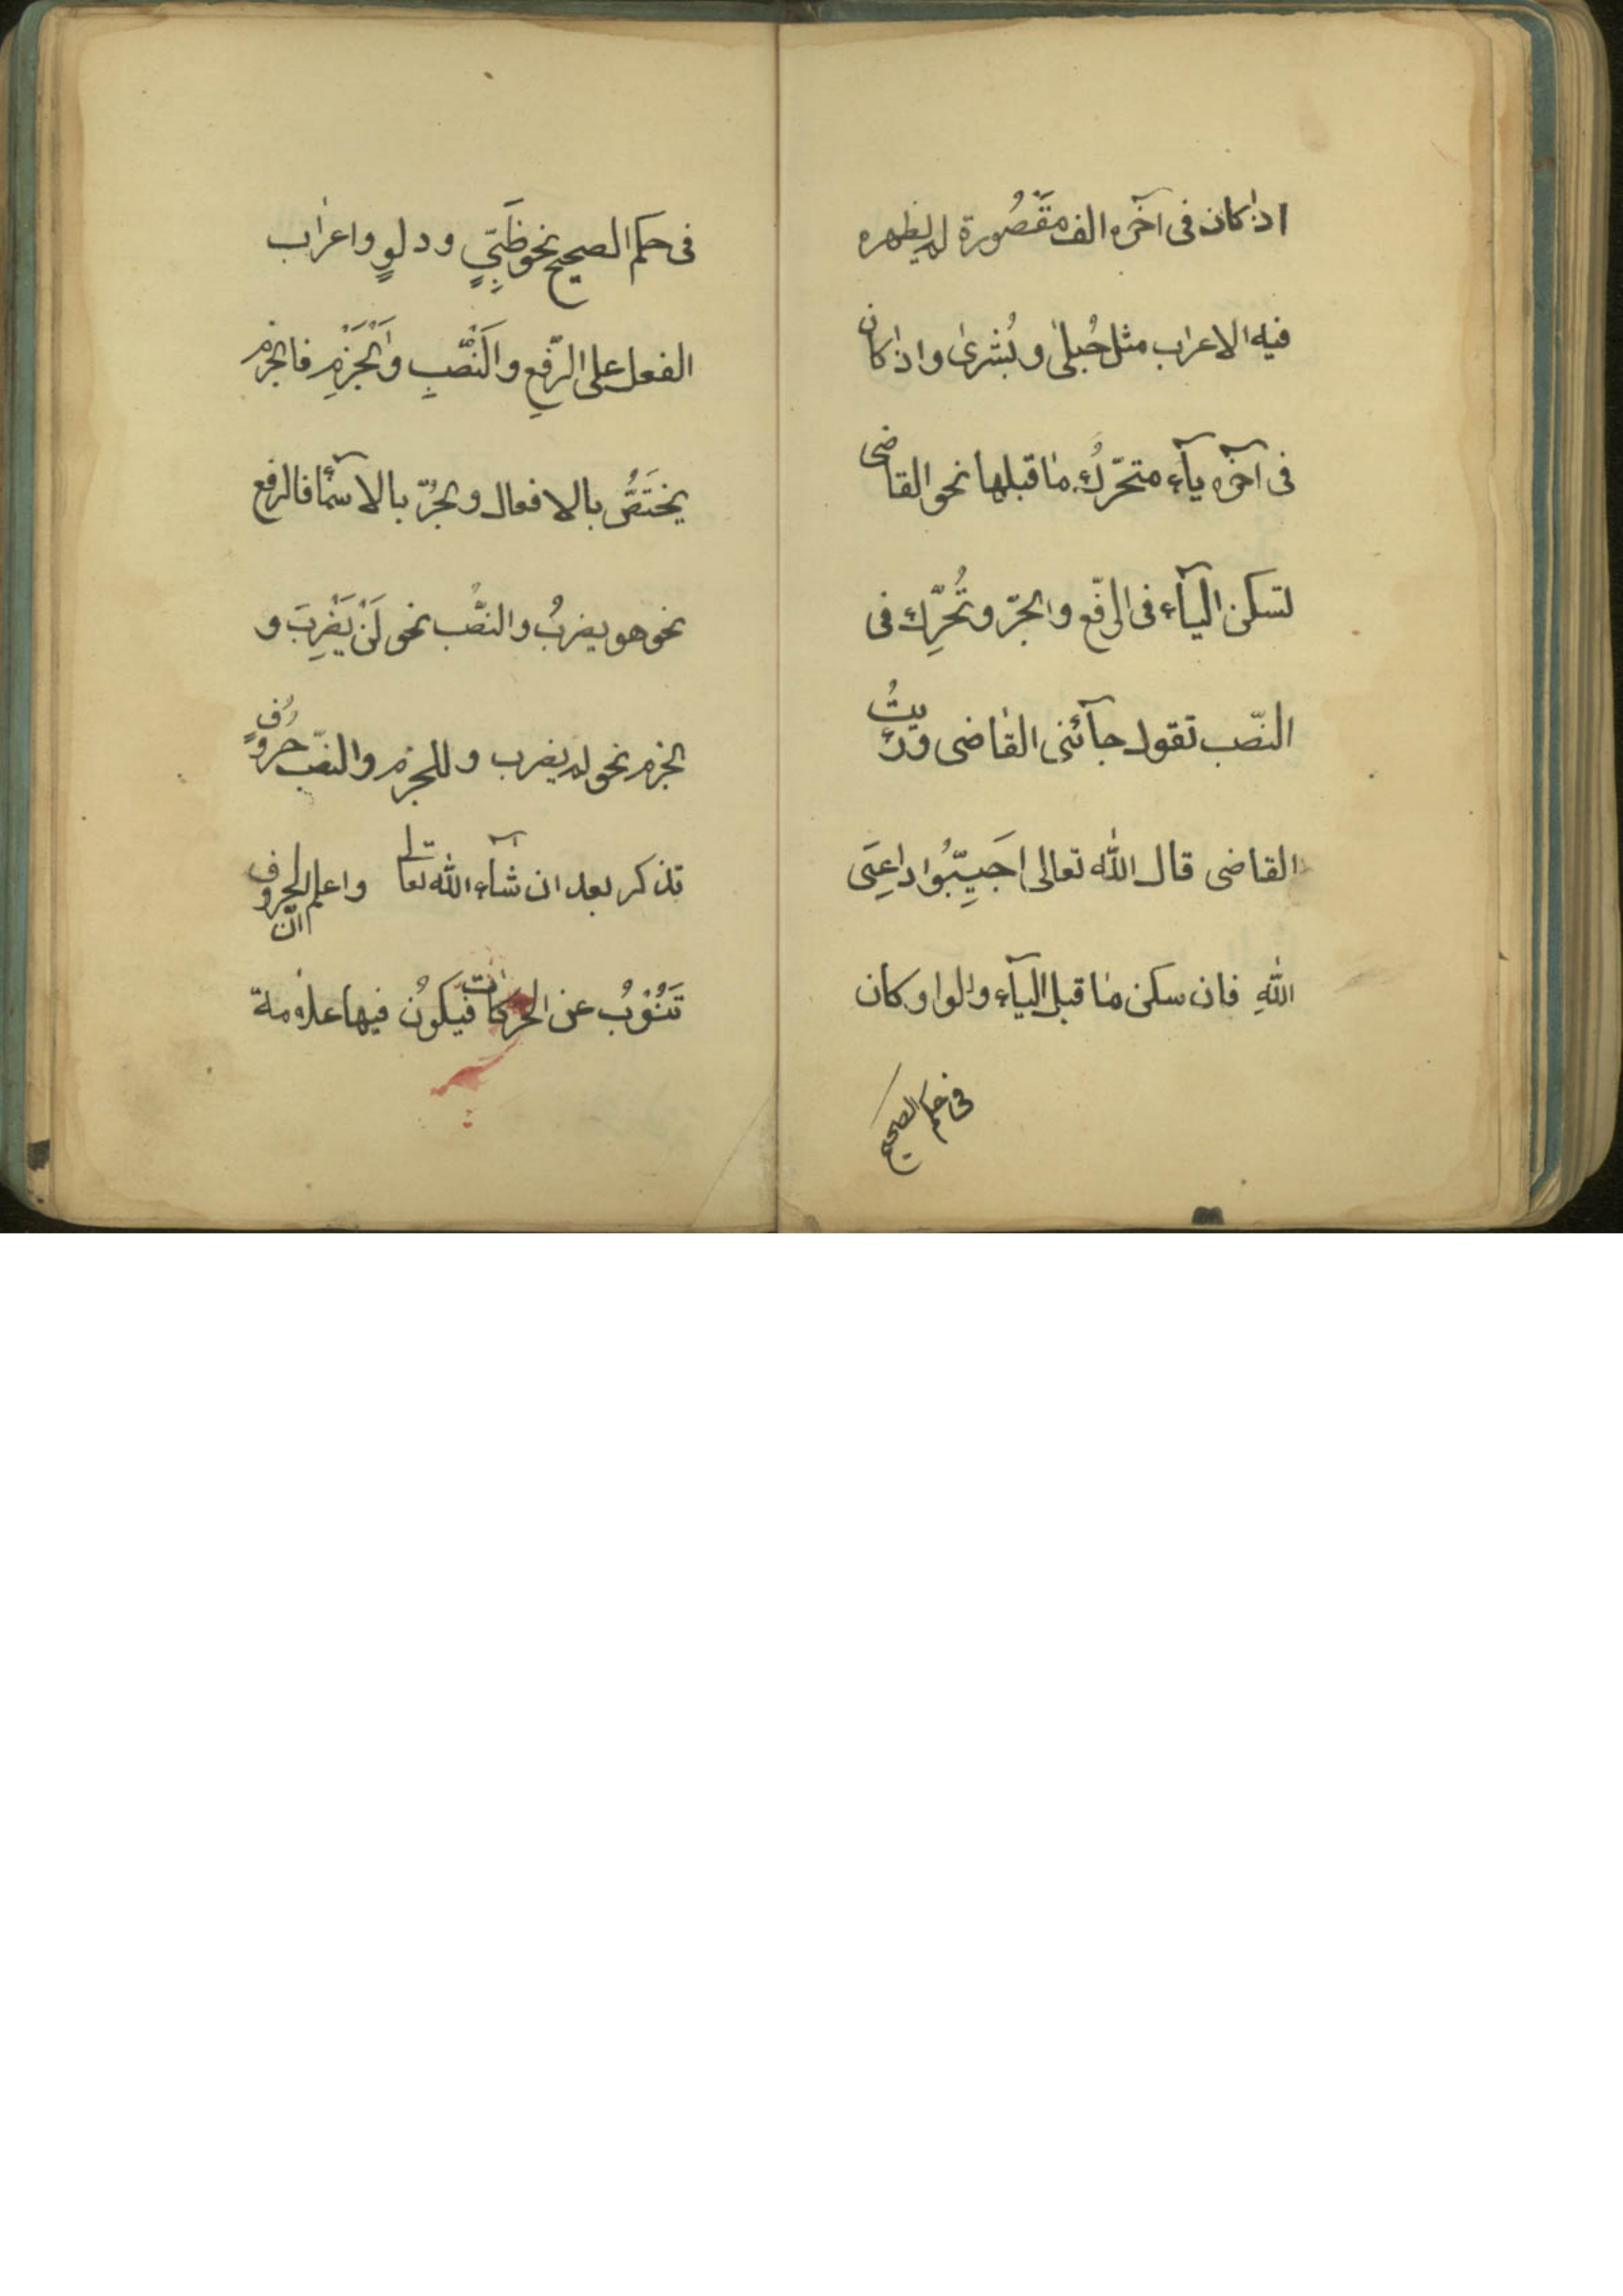 اذا كان فى آخره الف مَقْصُورة لم يظهره
فيه الاعراب مثل حُبلىٰ و بُشرىٰ و اذا كان
فى آخره ياۤء متحرّكُ ما قبلها نحو القاضى
لتسكن الياۤء فى الرفّع والجرّ و تُحُرِّك فى
النصّب تقول جاۤئنى القاضى ورئيتُ
القاضى قال اللّٰه تعالى اَجَيِبّبُوا داعِىَ
اللّٰهِ فان سكن ما قبل الياۤء والواو كان
فى حكم الصحيح
فى حكم الصحيح نحو ظَبّىٍ و دلوٍ واعراب
الفعل على الرّفعِ و النَّصْبِ وَالْجَزْمِ فالجزم
يختَصُّ بالافعال والجرُّ بالاسمۤاء فالرفع
نحو هو يضربُ والنصّب نحو لَنْ يَضْرِبَ و
الجزم نحو لم يضرب و للجزم والنصّب حروُفٍ
تذكر بعد ان شاۤء اللّٰه تعالى واعلم انّ الحروف
تَنُوْبُ عن الحركات فيكوُن فيها علامة